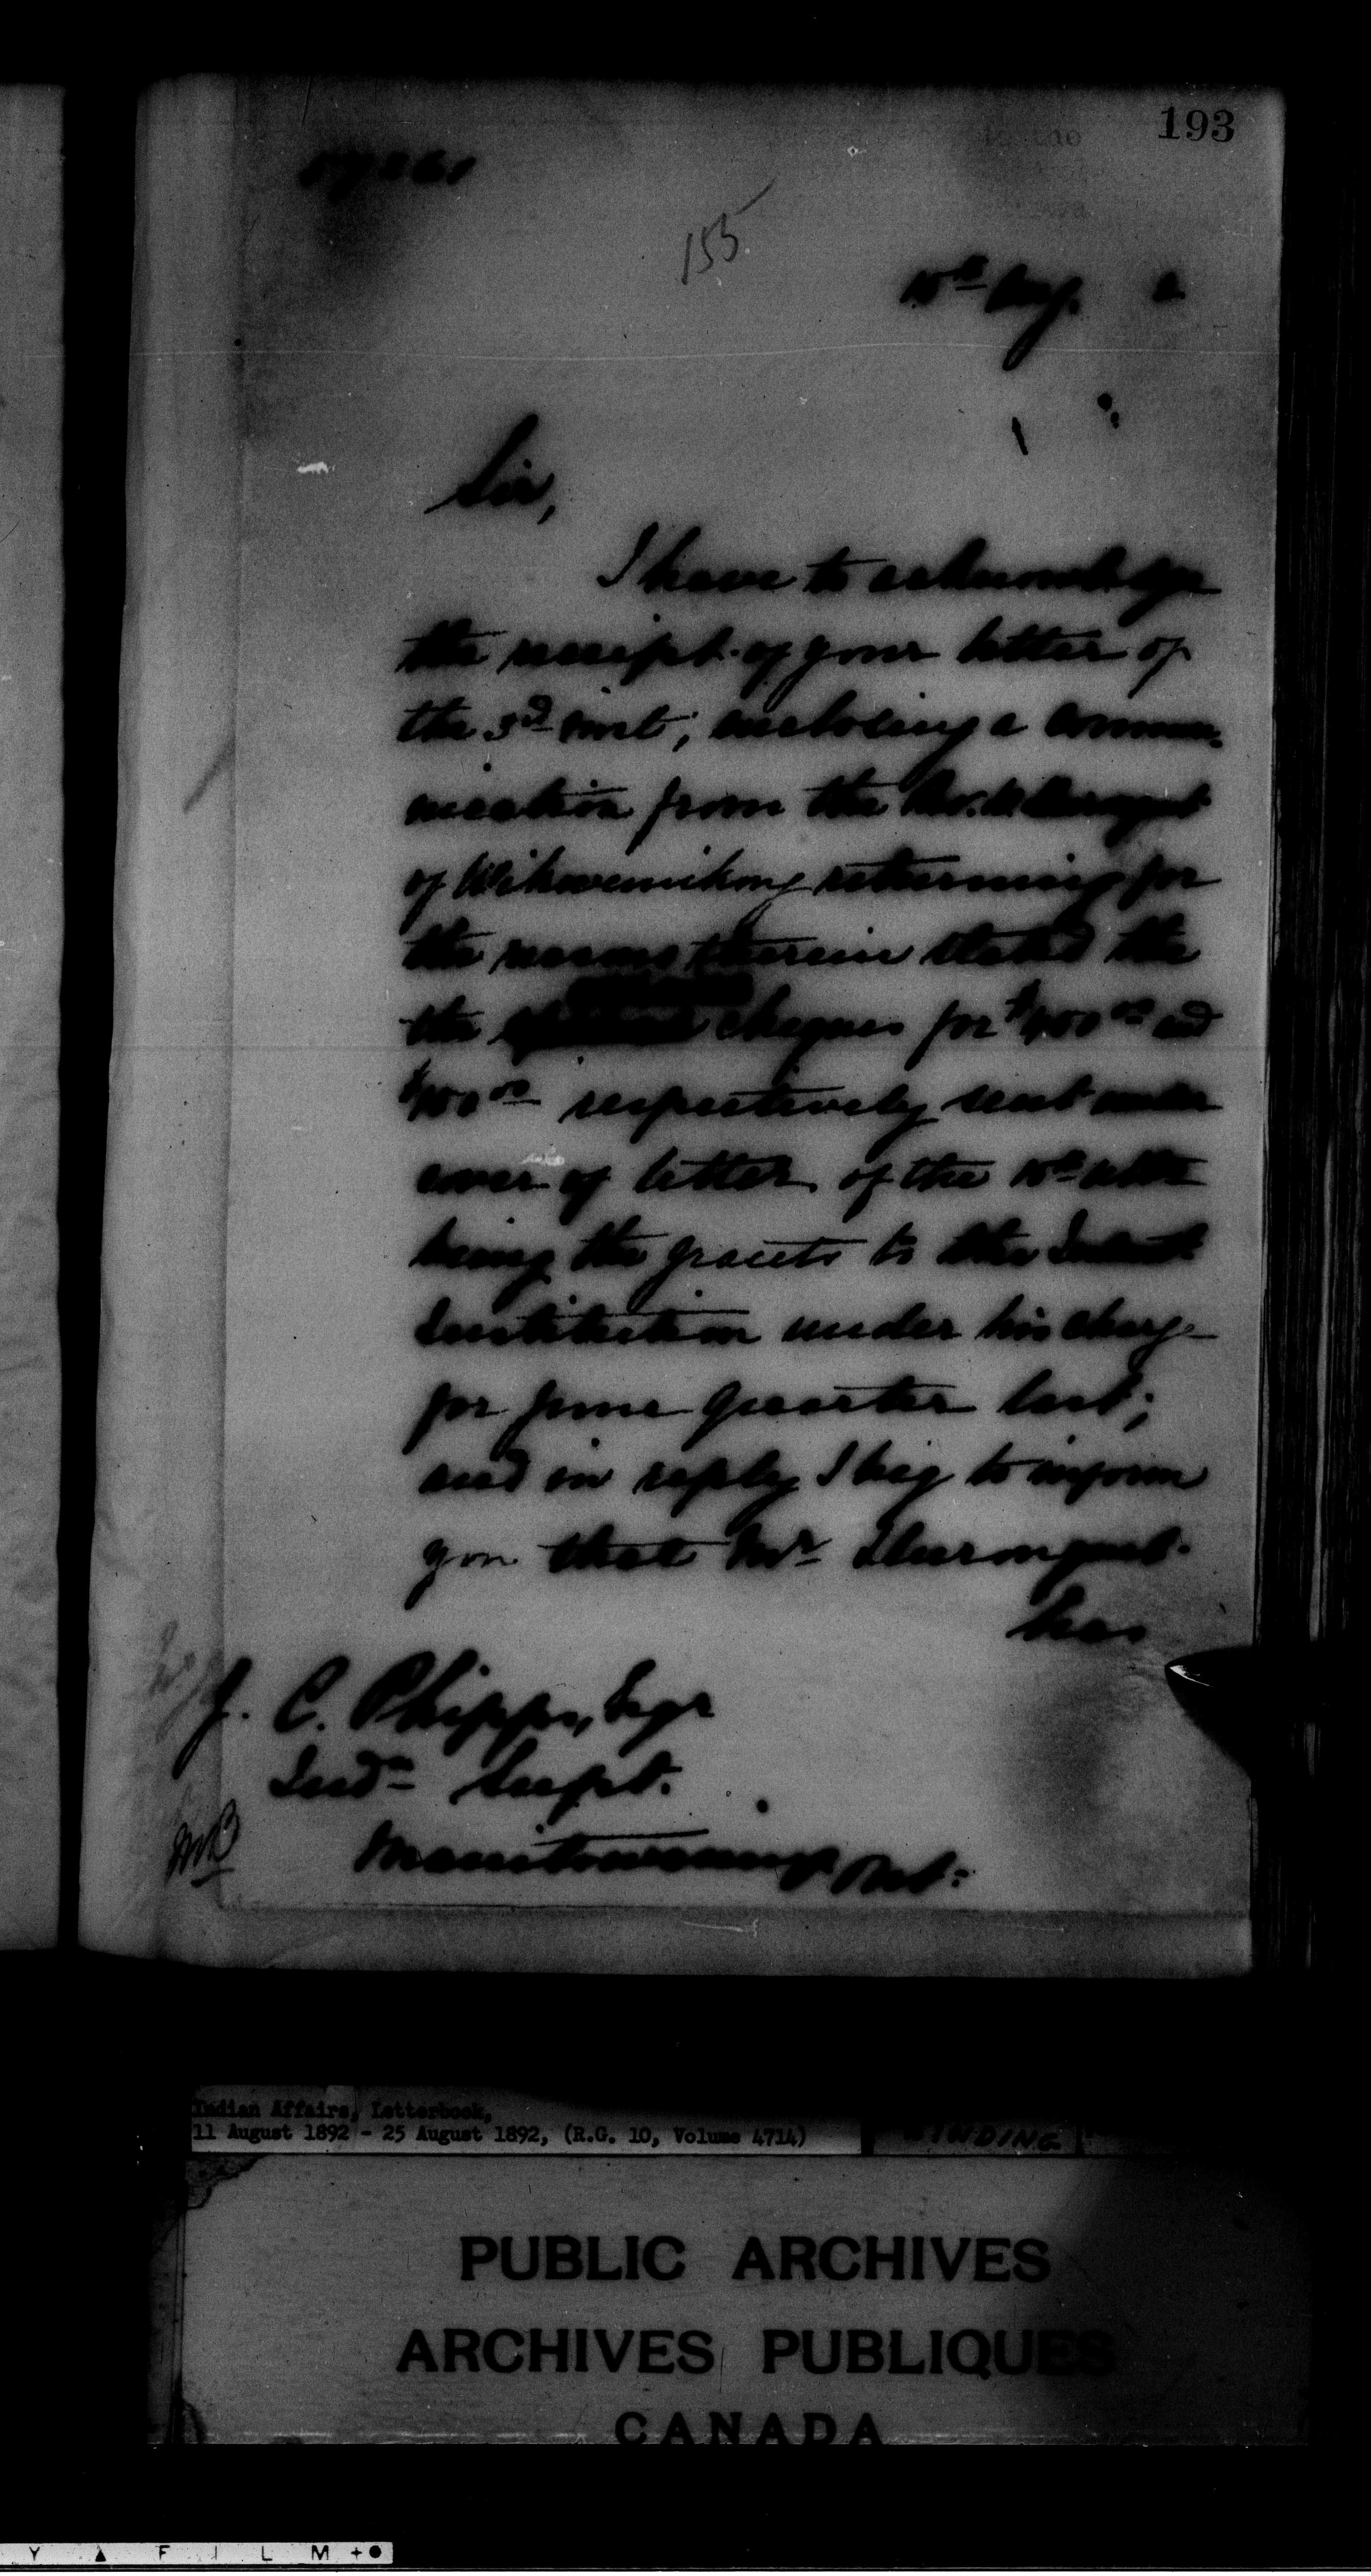 193
155
10th Aug. 2
Sir,
I have to acknowledge
the receipt of your letter of
the 3d inst; enclosing a commu-
nication from the Rev.
of Wikwemikong returning for
the reasons therein stated the
the cheques for $ and
respectively sent under
cover of letter of the 10th ulto
being the grants to the
Institution under his charge
for June quarter last;
and in reply I beg to inform
you that Mr
has
J. C. Phipps, Esqr
Indn Supt.
Manitowaning Ont.
Indian Affairs, Letterbook,
11 August 1892 - 25 August 1892, (R.G. 10, Volume 4714)
BINDING
PUBLIC ARCHIVES
ARCHIVES PUBLIQUES
CANADA
Y ▲ F I L M + ●